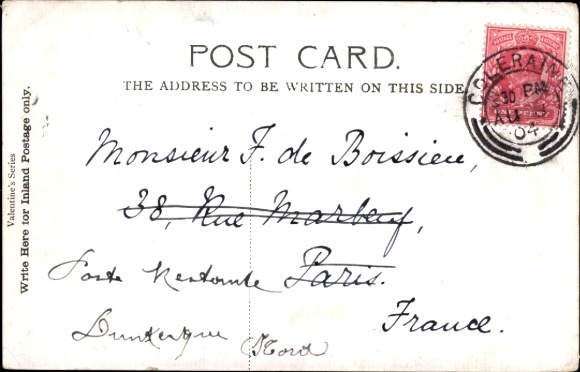 POST CARD.
THE ADDRESS TO BE WRITTEN ON THIS SIDE
Valentine's Series
Write Here for Inland Postage only.
COLERAINE
30 PM
AU
04
Monsieur F. de Boissieu,
38, Rue Marbeuf,
Poste Restante Paris.
France.
Dunkerque Nord